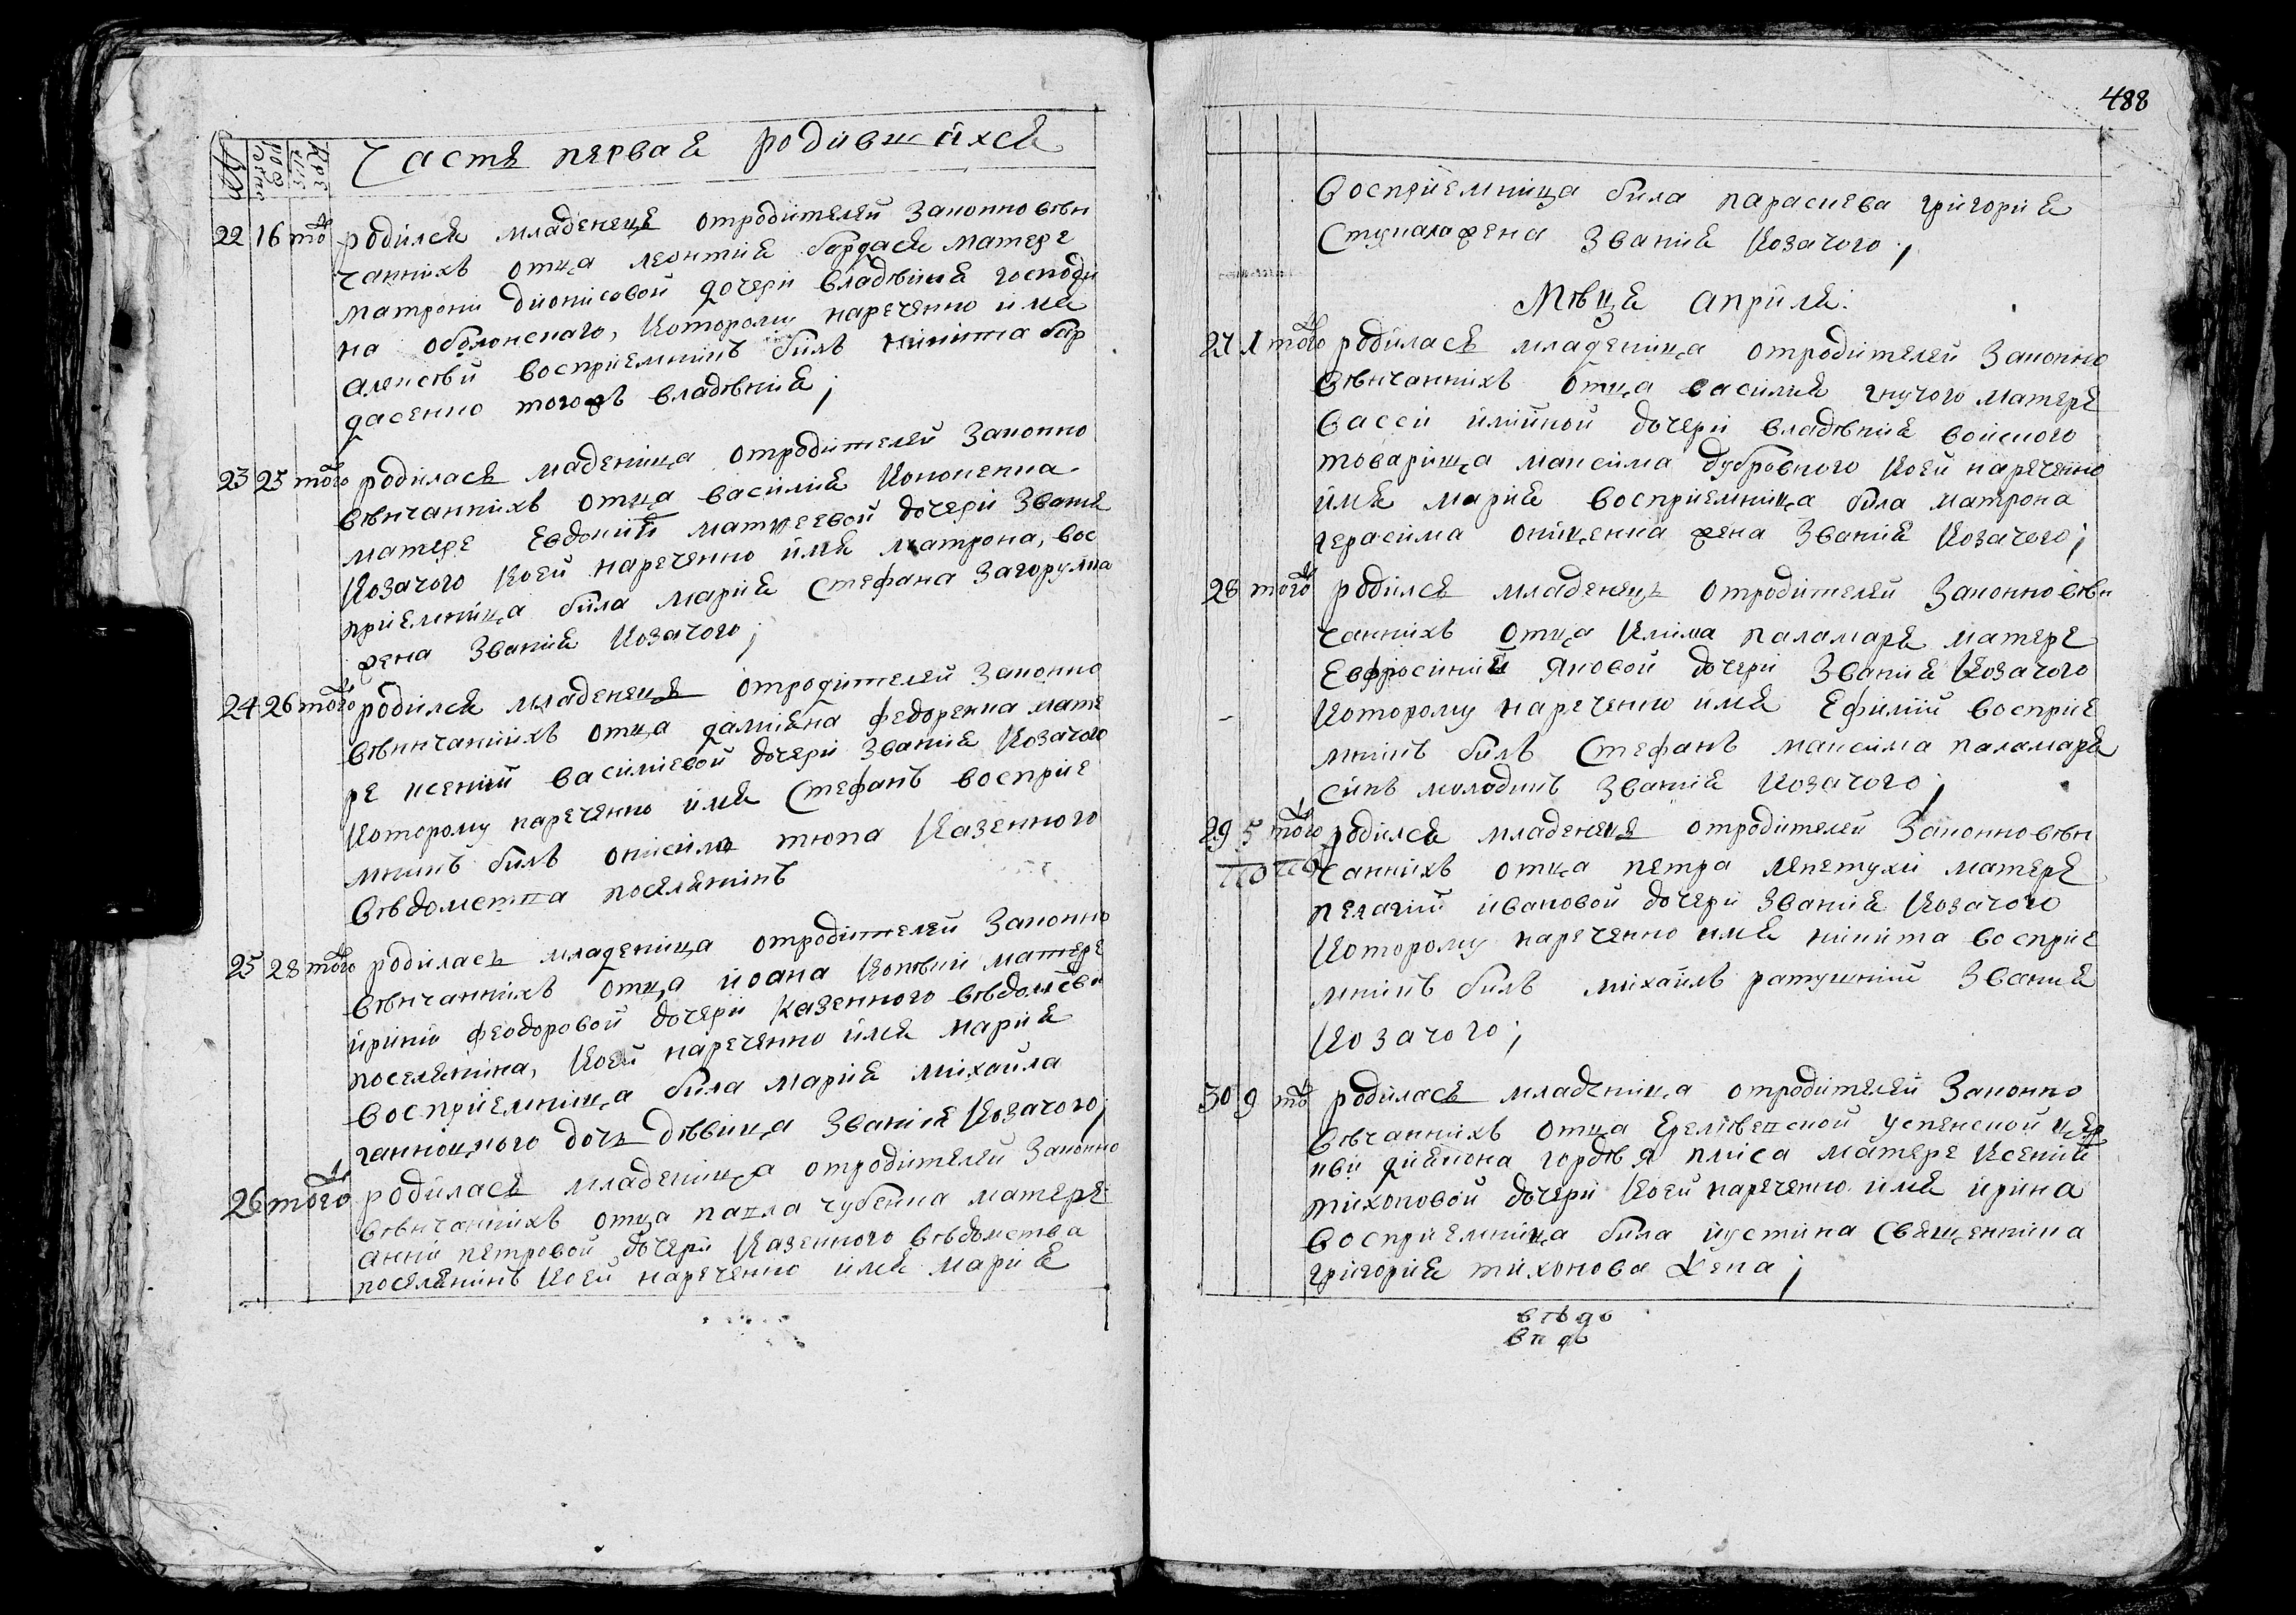 Часть первая родившихся
22 16 то родился младенець отродителей законно вѣн
чанихъ отца леонтия бардася матере
матрони дионисовой дочери владѣния господи
на оболонского, которому нареченно имя
алексѣй восприемникъ билъ никита бар
дасенко тогожъ владѣния;
23 25 того родилась маденица отродителей законно
вѣнчаннихъ отца василия кононенка
матере евдокии матѵеевой дочери звания
козачого коей нареченно имя матрона, вос
приемница била мария стефана загорулка
жена звания козачого;
24 26 того родился младенець отродителей законно
вѣннчанихъ отца дамияна федоренка мате
ре ксении василиевой дочери звания козачого
которому нареченно имя стефанъ восприе
мникъ билъ онисимъ тюпа казенного
вѣдомства поселянинъ
25 28 того родилась младеница отродителей законно
вѣнчаннихъ отца иоана матере
ирини феодоровой дочери казенного вѣдомсва
поселянина, коей нареченно имя мария
восприемница била мария михайла
ганноцкого дочь дѣвица звания козачого;
26 того родилась младеница отродителей законно
вѣнчаннихъ отца павла чубенка матере
анни петровой дочери казенного вѣдомства
поселянинъ коей нареченно имя мария
488
восприемница била параскева григория
ступака жена звания козачого;
Мѣця априля:
27 1 того родилась младеница отродителей законно
вѣнчаннихъ отца василия гнучого матере
васси илииной дочери владѣния войского
товарища максима дубровного коей нареченно
имя мария восприемница била матрона
герасима онищенка жена звания козачого;
28 того родился младенець отродителей законно вѣн
чаннихъ отца клима паламаря матере
евфросинии яковой дочери звания козачого
которому нареченно имя ефимий восприе
мникъ билъ стефанъ максима паламаря
синъ молодикъ звания козачого;
29 5 того родился младенець отродителей законно вѣн
чаннихъ отца петра лепетухи матере
пелагии ивановой дочери звания козачого
которому нареченно имя никита восприе
мникъ билъ михаилъ ратушний звания
козачого;
30 9 то родилась младеница отродителей законно
вѣчаннихъ отца успенской цер
кви диякона гордѣя плиса матере ксении
тихоновой дочери коей нареченно имя ирина
восприемница била иустина священника
григория тихонова жена;